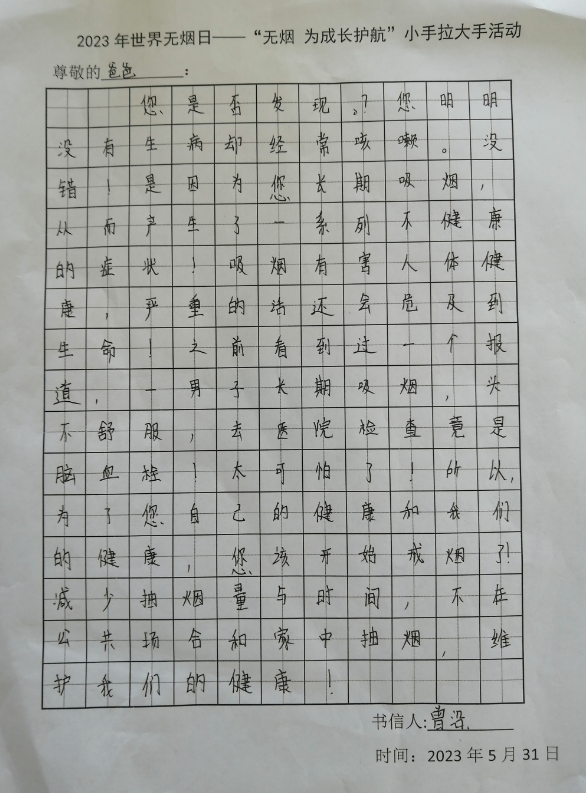 2023年世界无烟日——“无烟 为成长护航”小手拉大手活动
尊敬的爸爸:
您是否发现。?您明明
没有生病却经常咳嗽。没
错!是因为您长期吸烟,
从而产生了一系列不健康
的症状!吸烟有害人体健
康,严重的话还会危及到
生命!之前看到过一个报
道,一男子长期吸烟,头
不舒服,去医院检查竟是
脑血栓!太可怕了!所以,
为了您自己的健康和我们
的健康,您该开始戒烟了!
减少抽烟量与时间,不在
公共场合和家中抽烟,维
护我们的健康!
书信人:曾
时间:2023年5月31日